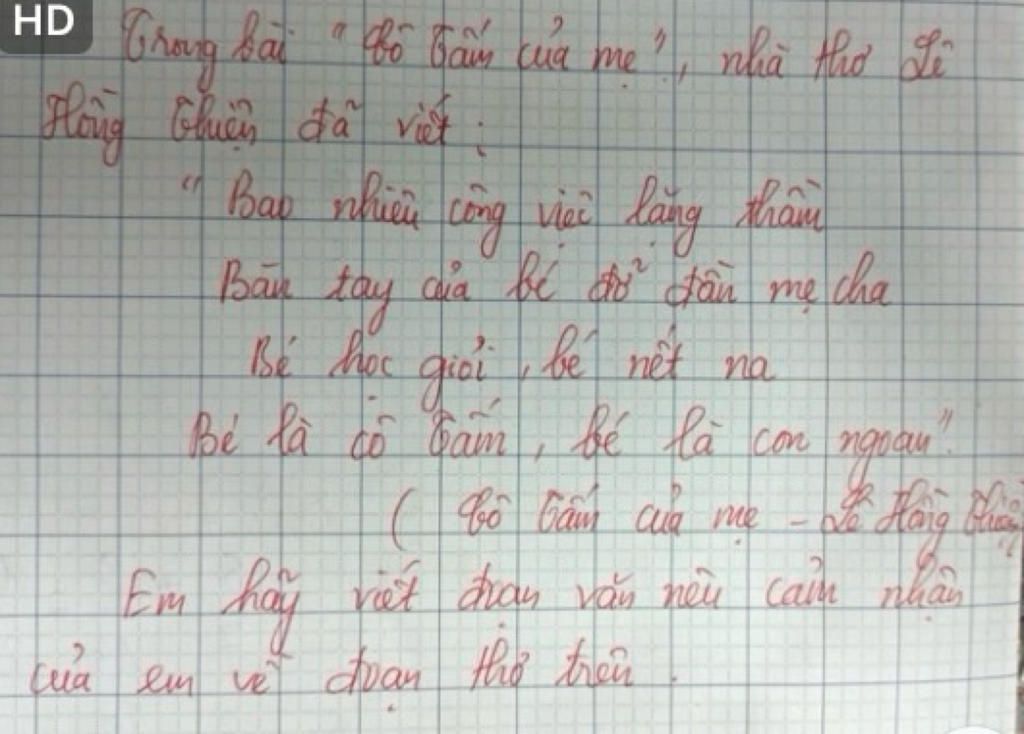 HD
Trong bài "Cô Tấm của mẹ", nhà thơ Lê
Hồng Thiện đã viết:
"Bao nhiêu công việc lặng thầm
Bàn tay của bé đỡ đần mẹ cha
Bé học giỏi, bé nết na
Bé là cô Tấm, bé là con ngoan".
( Cô Tấm của mẹ - Lê Hồng Thiện
Em hãy viết đoạn văn nêu cảm nhận
của em về đoạn thơ trên.